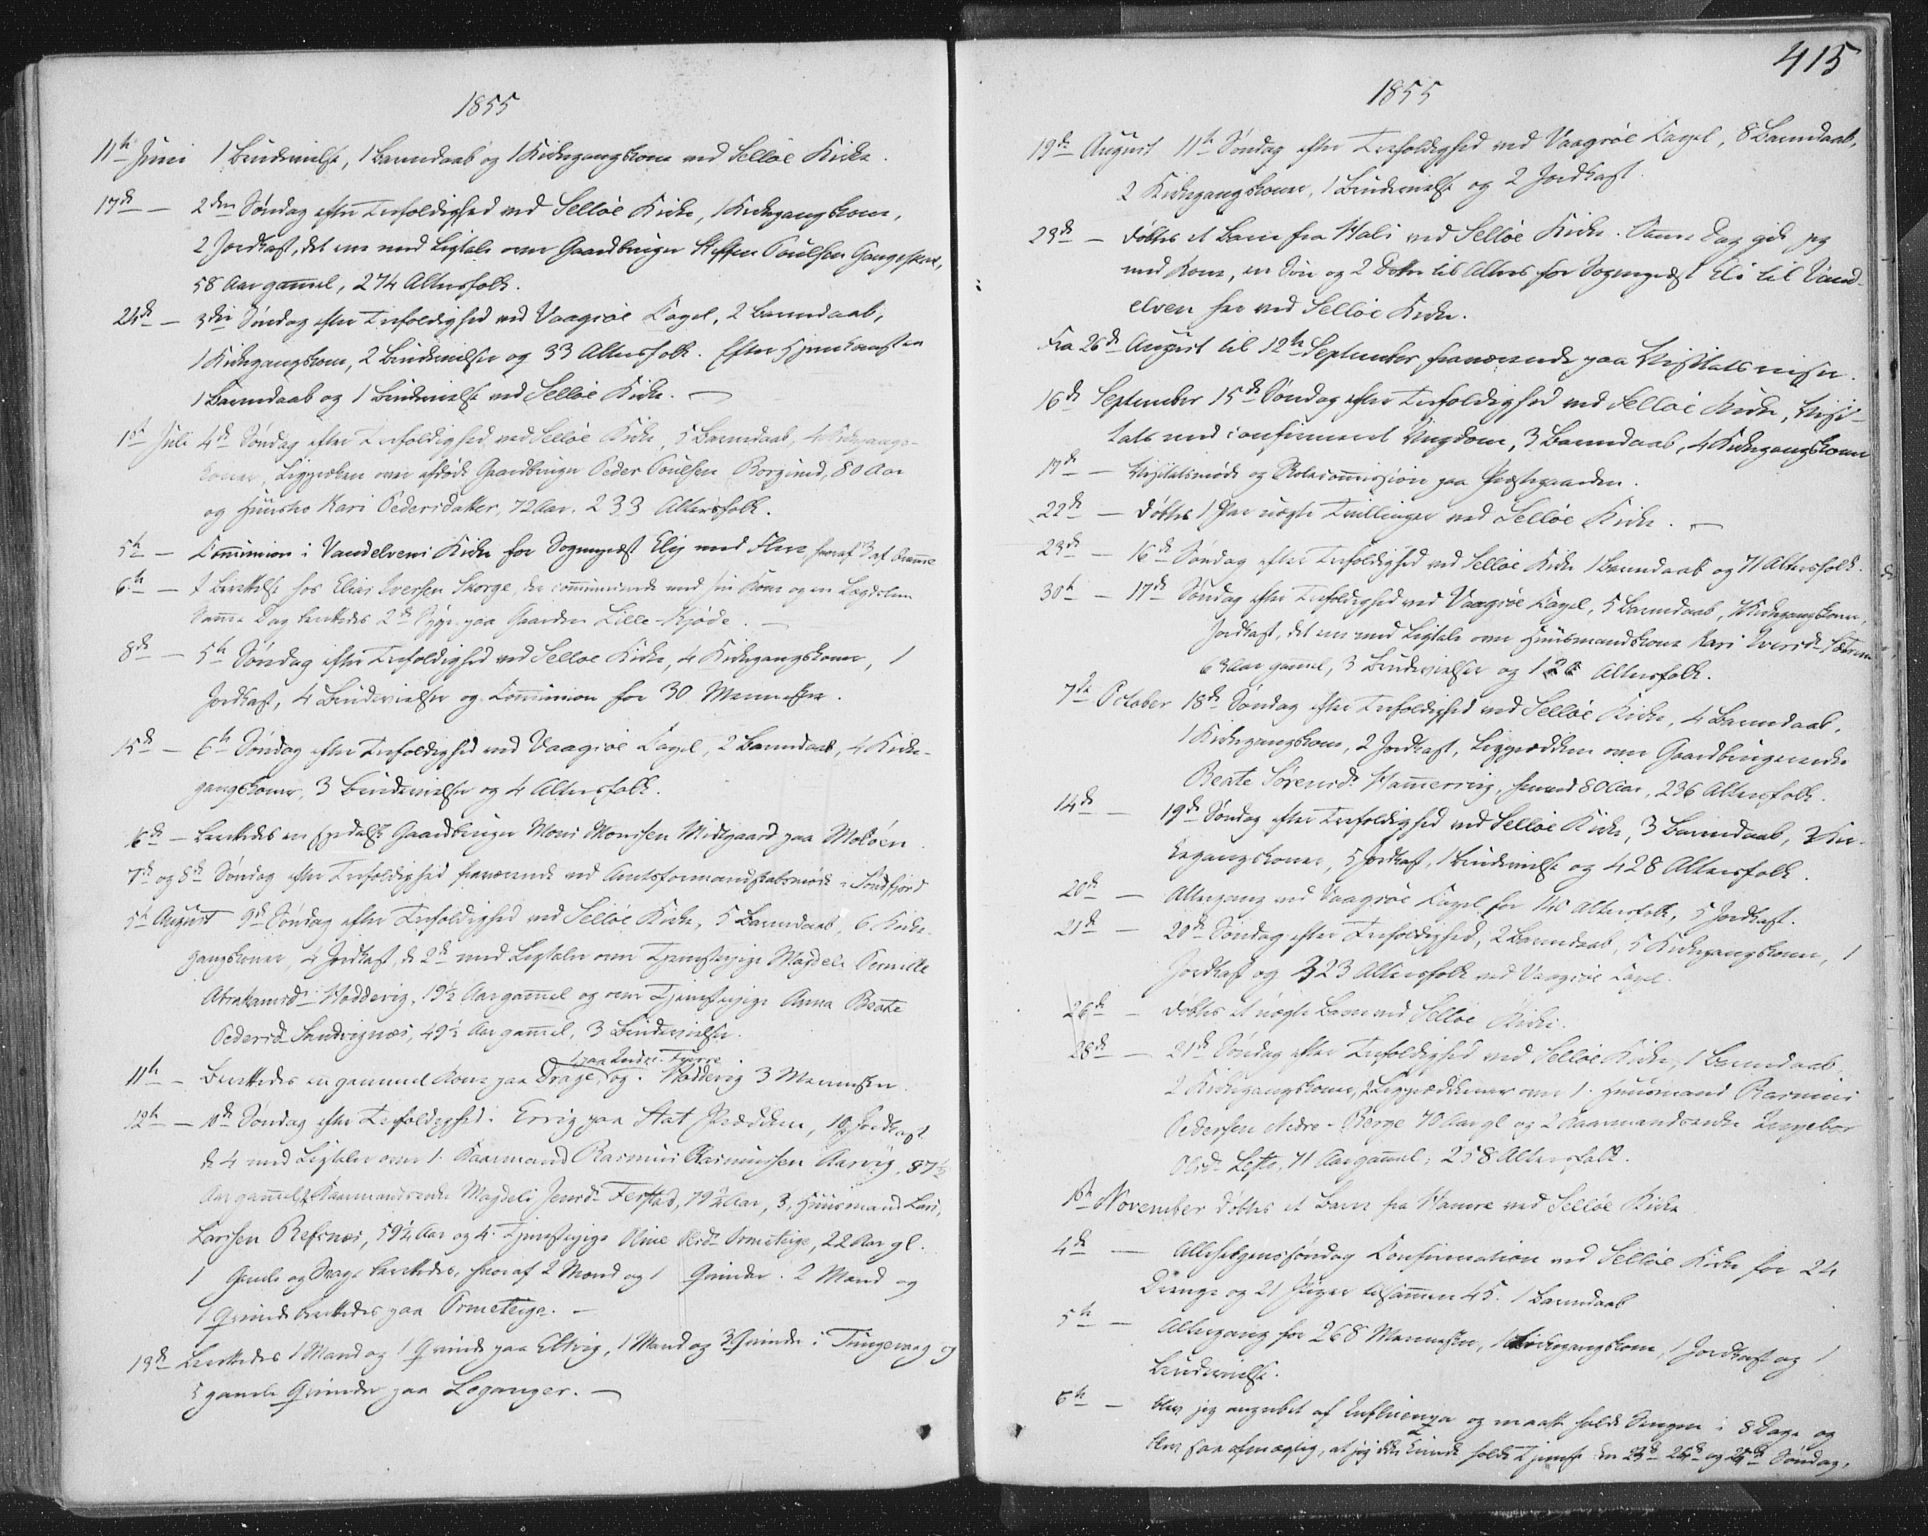 1855
11th Juni 1 Brudevielse, 1 Barnedaab og 1 Kirkegangskone ved Selløe Kirke.
17de — 2den Søndag efter Trefoldighed ved Selløe Kirke, 1 Kirkegangskone,
2 Jordkast, det ene med Ligtale over Gaardbruger Steffen Poulsen
58 Aar gammel, 274 Altersfolk.
24de — 3die Søndag efter Trefoldighed ved Vaagsøe Capel, 2 Barnedaab,
1 Kirkegangskone, 2 Brudevielser og 33 Altersfolk. Efter Hjemkomsten
1 Barnedaab og 1 Brudevielse ved Selløe Kirke. —
1ste Juli 4de Søndag efter Trefoldighed ved Selløe Kirke, 5 Barnedaab, 4 Kirkegangs-
koner, Liigpræken over afdøde Gaardbruger Peder Poulsen Borgund, 80 Aar
og Huustro Kari Pedersdatter, 72 Aar. 233 Altersfolk.
5te — Communion i Vandelvens Kirke for Sogneprest med Flere hvoraf 3 af
6te — Berettelse hos Elias Iversen Skorge, der communicerede med sin Kone og en Lægdslem
Samme Dag berettedes 2de Syge paa Gaarden Lille-Kjøde. —
8de — 5te Søndag efter Trefoldighed ved Selløe Kirke, 4 Kirkegangskoner, 1
Jordkast, 4 Brudevielser og Communion for 30 Mennesker.
15de — 6te Søndag efter Trefoldighed ved Vaagsøe Capel, 2 Barnedaab, 4 Kirke-
gangskoner, 3 Brudevielser og 4 Altersfolk.
16de — Berettedes en spedalsk Gaardbruger Mons Monssen Midtgaard paa Moløen.
7de og 8de Søndag efter Trefoldighed fraværende ved Amtsformandskabsmøde i Søndfjord
5te August 9de Søndag efter Trefoldighed ved Selløe Kirke, 5 Barnedaab, 6 Kirke-
gangskoner, 4 Jordkast, de 2de med Ligtaler over Tjenestepige Magdele Pernille
Abrahamsd. Hoddevig, 19½ Aar gammel og over Tjenestepige Anna Beate
Pedersd. Sandvignæs, 49½ Aar gammel, 3 Brudevielser.
1 paa Indre-Fjørre
11te — Berettedes en gammel Kone paa Drage, og i Hoddevig 3 Mennesker.
12te — 10de Søndag efter Trefoldighed: Ervig paa Stat Prædiken, 19 Jordkast
de 4 med Ligtaler over 1. Kaarmand Rasmus Rasmussen Aarvig, 87½
Aar gammel, 2. Kaarmandsenke Magdeli Jensd. Ferstad, 79½ Aar, 3. Huusmand Lars
Larsen Refsnæs, 59½ Aar og 4. Tjenestepige Oline Olsd. Ormeteige, 22 Aar gl.
1 Gamle og Svage berettedes, hvoraf 2 Mænd og 1 Qvinder. 2 Mænd og
1 Qvinde berettedes paa Ormeteige. —
13de Berettedes 1 Mand og 1 Qvinde paa Eltvig, 1 Mand og 3 Qvinder i Tungevaag og
5 gamle Qvinder paa Leganger. —
415
1855
19de August 11te Søndag efter Trefoldighed ved Vaagsøe Capel, 8 Barnedaab,
2 Kirkegangskoner, 1 Brudevielse og 2 Jordkast.
23de — Døbtes et Barn fra Hals ved Selløe Kirke. Samme Dag gik jeg
med Kone, en Søn og 2 Døttre til Alters for Sogneprest til Vand-
elven her ved Selløe Kirke.
Fra 26de August til 12te September fraværende paa Visitatsreiser.
16de September 15de Søndag efter Trefoldighed ved Selløe Kirke, Visi-
tats med confirmeret Ungdom, 3 Barnedaab, 4 Kirkegangskoner
17de — Visitatsmøde og Skolecommission paa Præstegaarden.
22de — Døbtes 1 Par uægte Tvillinger ved Selløe Kirke. —
23de — 16de Søndag efter Trefoldighed ved Selløe Kirke 1 Barnedaab og 71 Altersfolk.
30te — 17de Søndag efter Trefoldighed ved Vaagsøe Capel, 5 Barnedaab, 4 Kirkegangskoner,
Jordkast, det ene med Ligtale over Huusmandskone Kari Iversd.
63 Aar gammel, 3 Brudevielser og 126 Altersfolk.
7de October 18de Søndag efter Trefoldighed ved Selløe Kirke, 4 Barnedaab,
1 Kirkegangskone, 2 Jordkast, Liigprædiken over Gaardbrugerenke
Beate Sørensd. Hammervig, henved 80 Aar, 236 Altersfolk.
14de — 19de Søndag efter Trefoldighed ved Selløe Kirke, 3 Barnedaab, 3 Kir-
kegangskoner, 5 Jordkast, 1 Brudevielse og 428 Altersfolk.
20de — Altergang ved Vaagsøe Capel for 140 Altersfolk, 5 Jordkast.
21de — 20de Søndag efter Trefoldighed, 2 Barnedaab, 5 Kirkegangskoner, 1
Jordkast og 323 Altersfolk ved Vaagsøe Capel.
26de — Døbtes et uægte Barn ved Selløe Kirke.
28de — 21de Søndag efter Trefoldighed ved Selløe Kirke, 1 Barnedaab,
2 Kirkegangskoner, 2 Liigprædikener over 1. Huusmand Rasmus
Pedersen Nedre-Berge 70 Aar gl og 2 Kaarmandsenke Ingebor
Olsd. Lefto, 71 Aar gammel, 258 Altersfolk.
1ste November døbtes et Barn fra Hamre ved Selløe Kirke
4de — Allehelgenssøndag Confirmation ved Selløe Kirke for 24
Drenge og 21 Piger tilsammen 45. 1 Barnedaab
5te — Altergang for 268 Mennesker, 1 Kirkegangskone, 1 Jordkast og 1
Brudevielse.
6te — blev jeg angrebet af Influenza og maatte holde Sengen i 8 Dage og
blev saa afmægtig, at jeg ikke kunde holde Tjeneste den 23de 24de og 25de Søndag,